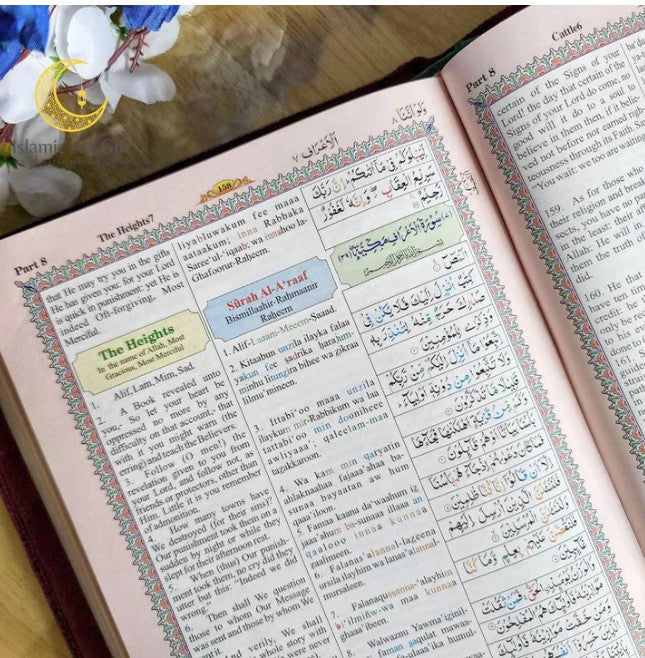 Part 8
The Heights7
158
الأعراف ٧
ولو أننا ٨
that He may try you in the gifts
He has given you: for your Lord
is quick in punishment: yet He is
indeed Oft-forgiving, Most
Merciful.
The Heights
In the name of Allah, Most
Gracious, Most Merciful
1. Alif, Lam, Mim, Sad.
2. A Book revealed unto
you,- So let your heart be
oppressed no more by any
difficulty on that account,- that
with it you might warn (the
erring) and teach the Believers.
3. Follow (O men!) the
revelation given to you from
your Lord, and follow not, as
friends or protectors, other than
Him. Little it is you remember
of admonition.
4. How many towns have
We destroyed (for their sins)?
Our punishment took them on a
sudden by night or while they
slept for their afternoon rest.
5. When (thus) Our punish-
ment took them, no cry did they
utter but this: "Indeed we did
wrong."
6. Then shall We question
those to whom Our Message
was sent and those by whom We
sent it.
And verily, We shall
whole story with
liyabluwakum fee maaa
aataakum; inna Rabbaka
Saree'ul-'iqaab; wa innahoo la-
Ghafoorur-Raheem.
Sûrah Al-A'raaf
Bismillaahir-Rahmaanir
Raheem
1. Alif-Laaam-Meeem-Saaad.
2. Kitaabun unzila ilayka falaa
yakun fee sadrika harajum-
minhu litunzira bihee wa zikraa
lilmu'mineen.
3. Ittabi'oo maaa unzila
ilaykum mir-Rabbikum wa laa
tattabi'oo min dooniheee
awliyaaa'; qaleelam-maa
tazakkaroon.
4. Wa kam min qaryatin
ahlaknaahaa fajaaa'ahaa ba-
sunaa bayaatan aw hum
qaaa'iloon.
5. Famaa kaana da'waahum iz
jaaa'ahum ba-sunaaa illaaa an
qaalooo innaa kunnaa
zaalimeen.
6. Falanas'alannal-lazeena
ursila ilayhim wa lanas'alannal-
mursaleen.
7. Falanaqussanna-'alayhim
bi'ilminw-wa maa kunnaa
ghaaa'ibeen.
Walwaznu Yawma'iginil-
faman saqulat mawaa-
ليبلوكم في ما آتاكم إن ربك
سريع العقاب وإنه لغفور
رحيم
سورة الأعراف مكية
بسم الله الرحمن الرحيم
المص
كتب أنزل إليك فلا يكن في
صدرك حرج منه لتنذر به
وذكرى للمؤمنين
اتبعوا ما أنزل إليكم من ربكم
ولا تتبعوا من دونه أولياء
قليلا ما تذكرون
وكم من قرية أهلكناها فجاءها
بأسنا بياتا أو هم قائلون
فما كان دعواهم إذ جاءهم بأسنا
إلا أن قالوا إنا كنا ظالمين
فلنسئلن الذين أرسل إليهم
ولنسئلن المرسلين
فلنقصن عليهم بعلم وما كنا
غائبين
والوزن يومئذ الحق فمن ثقلت
Part 8
Cattle6
certain of the Signs of your
Lord! the day that certain of the
Signs of your Lord do come, no
good will it do to a soul to
believe in them then, if it belie-
ved not before nor earned right-
eousness through its Faith. Say:
"You wait: we too are waiting
159. As for those who
their religion and break
sects, you have no pa
in the least: their aff
Allah: He will in
them the truth of
did.
160. He that
have ten time
credit: he
only be re
to his ev
done to
161. S